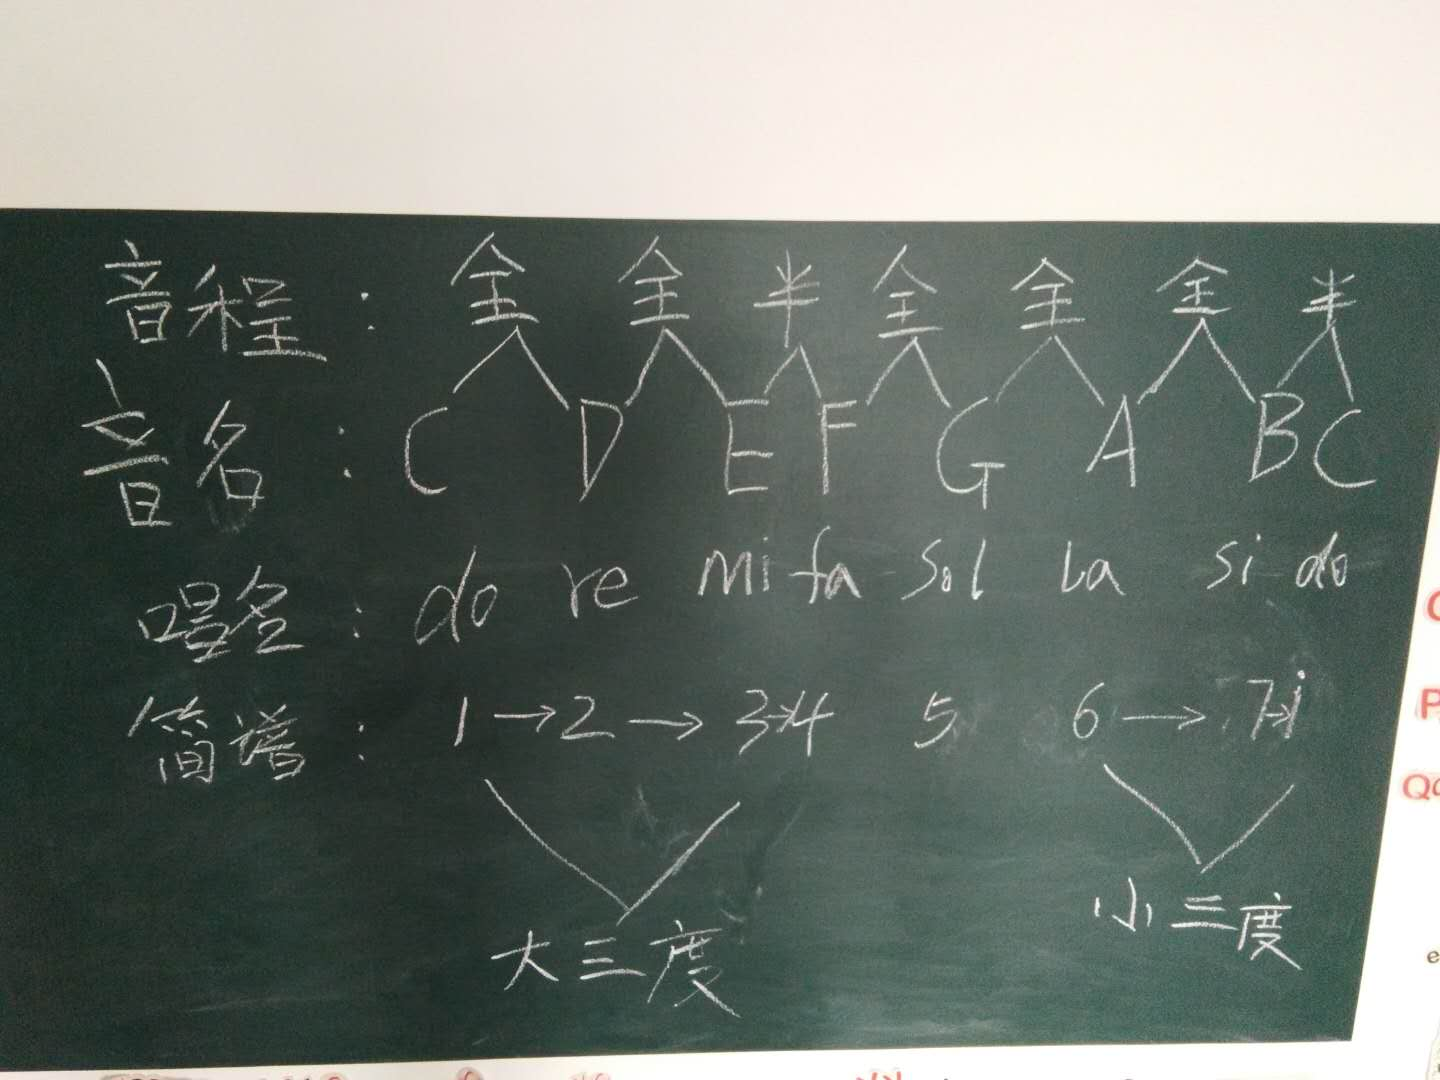 音程：全 全 半 全 全 全 半
音名：C D E F G A B C
唱名：do re mi fa sol la si do
简谱：1→2→3→4 5 6→7→i
大三度 小三度